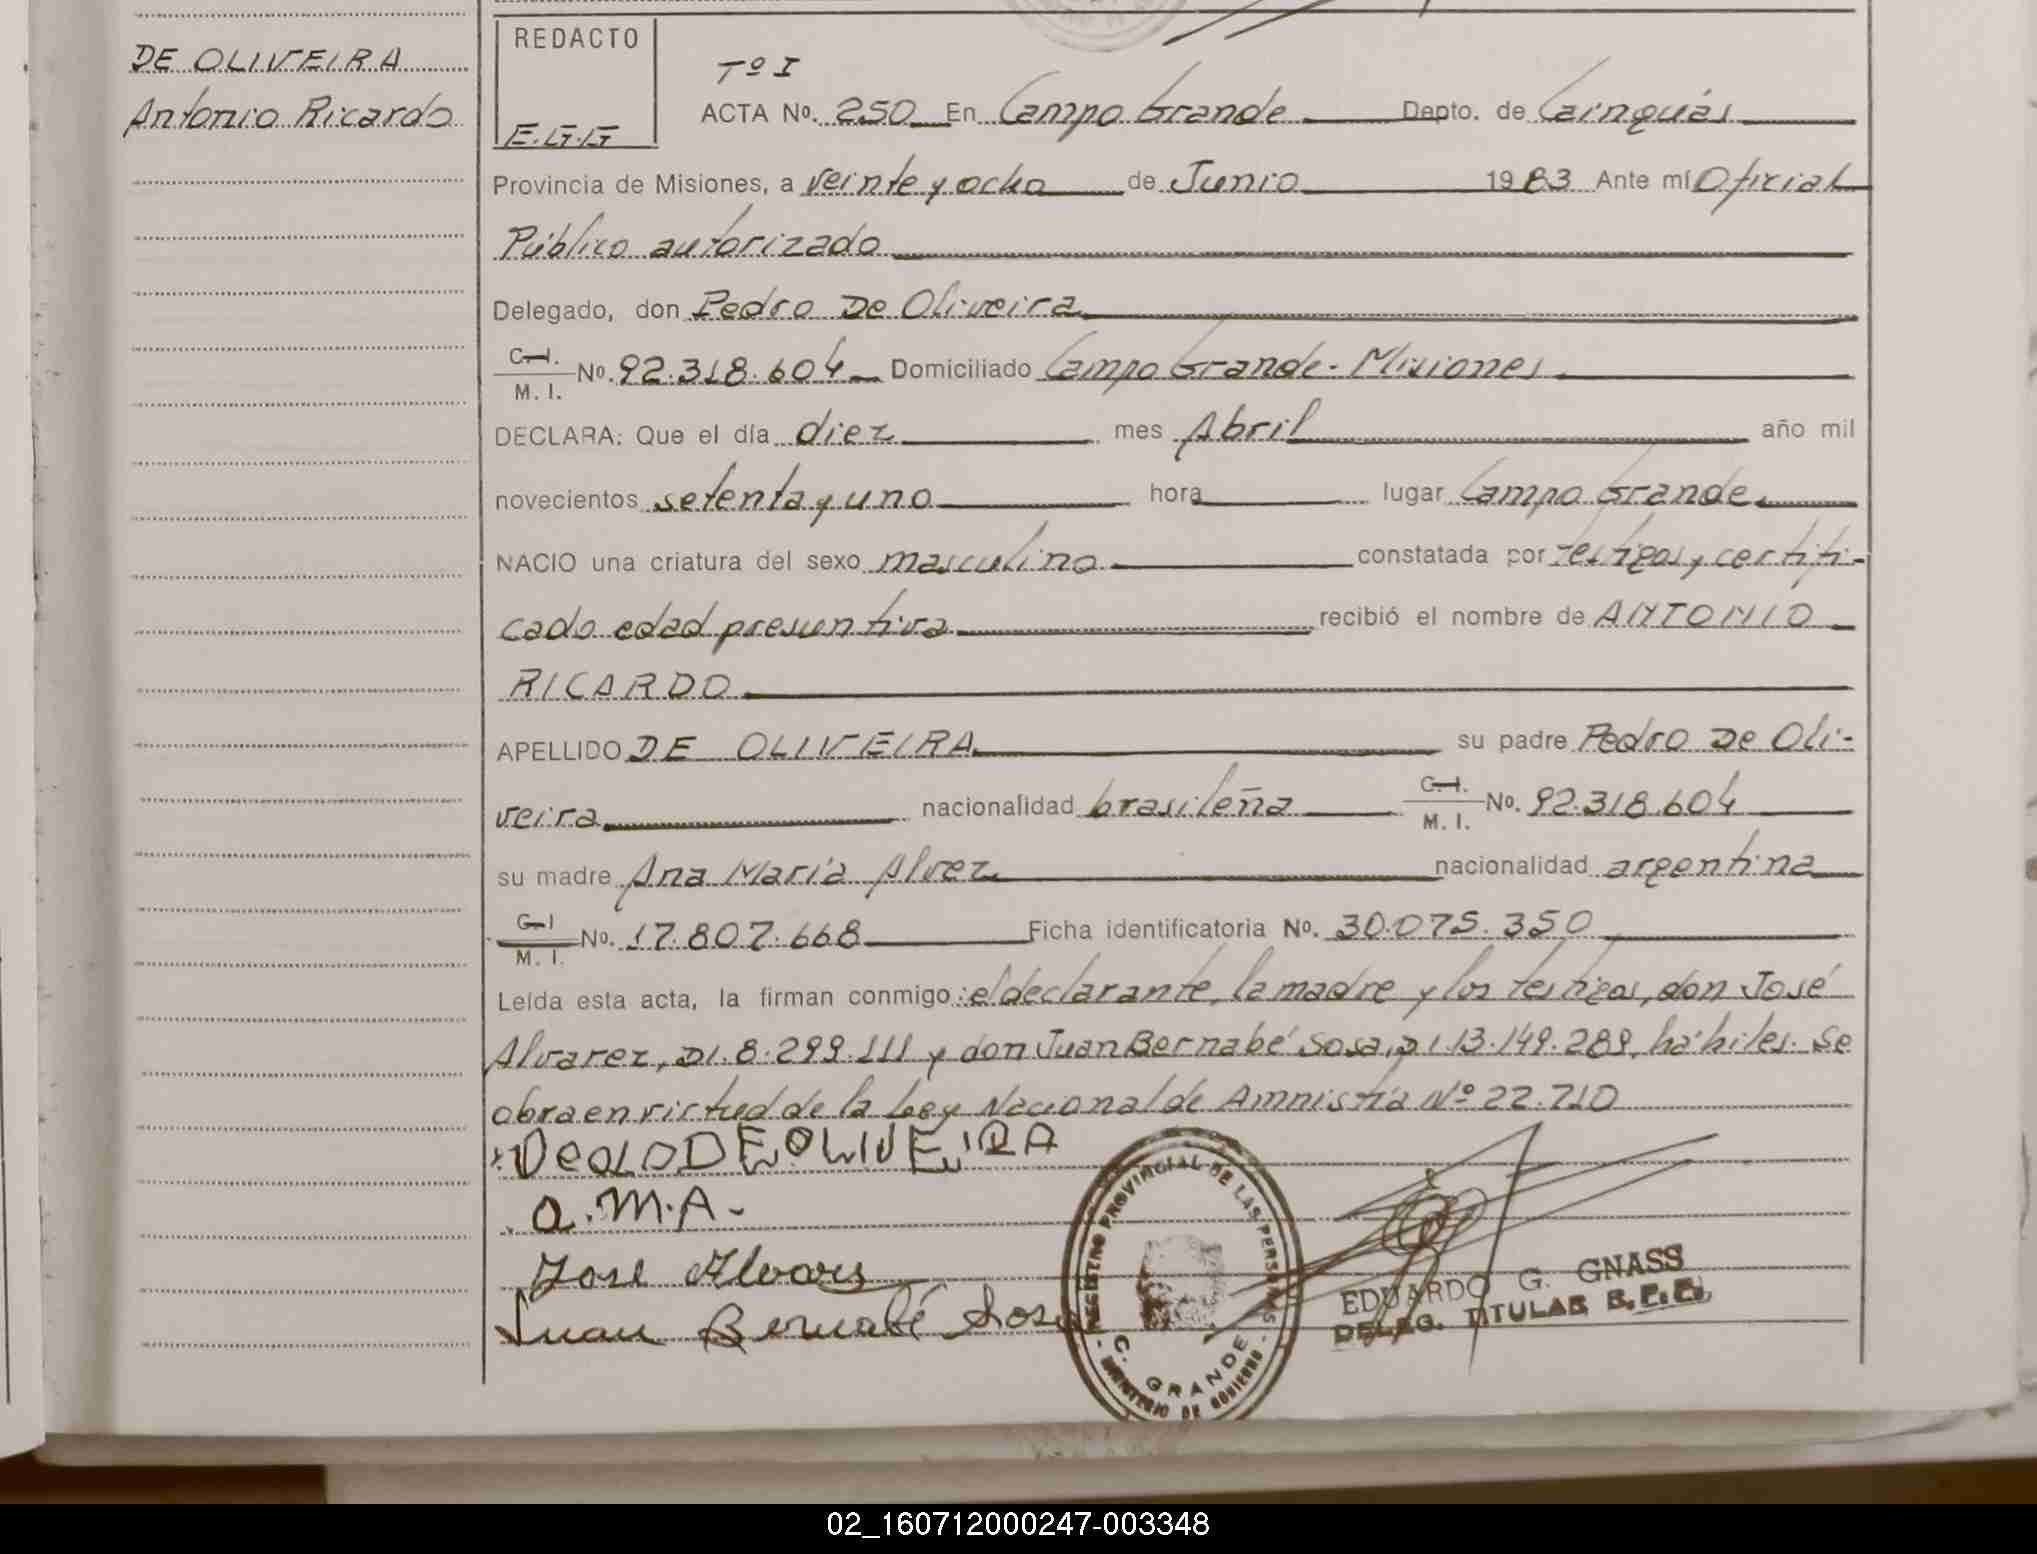 DE OLIVEIRA
Antonio Ricardo
REDACTO
E.G.G
Tº I
ACTA No. 250 En Campo Grande Depto. de Cainguás
Provincia de Misiones, a veinte y ocho de Junio 1983 Ante mí Oficial
Público autorizado
Delegado, don Pedro De Oliveira
C.I.
M. I. No. 92.318.604 Domiciliado Campo Grande - Misiones
DECLARA: Que el día diez mes Abril año mil
novecientos setenta y uno hora lugar Campo Grande
NACIO una criatura del sexo masculino constatada por testigos y certifi-
cado edad presuntiva recibió el nombre de ANTONIO
RICARDO
APELLIDO DE OLIVEIRA su padre Pedro De Oli-
veira nacionalidad brasileña C.I. M. I. No. 92.318.604
su madre Ana María Alvez nacionalidad argentina
C.I
M. I. No. 17.807.668 Ficha identificatoria No. 30.075.350
Leída esta acta, la firman conmigo: el declarante, la madre y los testigos, don José
Alvarez, DI. 8.299.111 y don Juan Bernabé Sosa, D I. 13.149.289, hábiles. Se
obra en virtud de la Ley Nacional de Amnistía Nº 22.710
DE OLIVEIRA
a.M.A.-
José
Juan Bernabé Sosa
REGISTRO PROVINCIAL DE LAS PERSONAS
C. GRANDE
- MINISTERIO DE GOBIERNO -
EDUARDO G. GNASS
DELEG. TITULAR R.P.P.
02_160712000247-003348